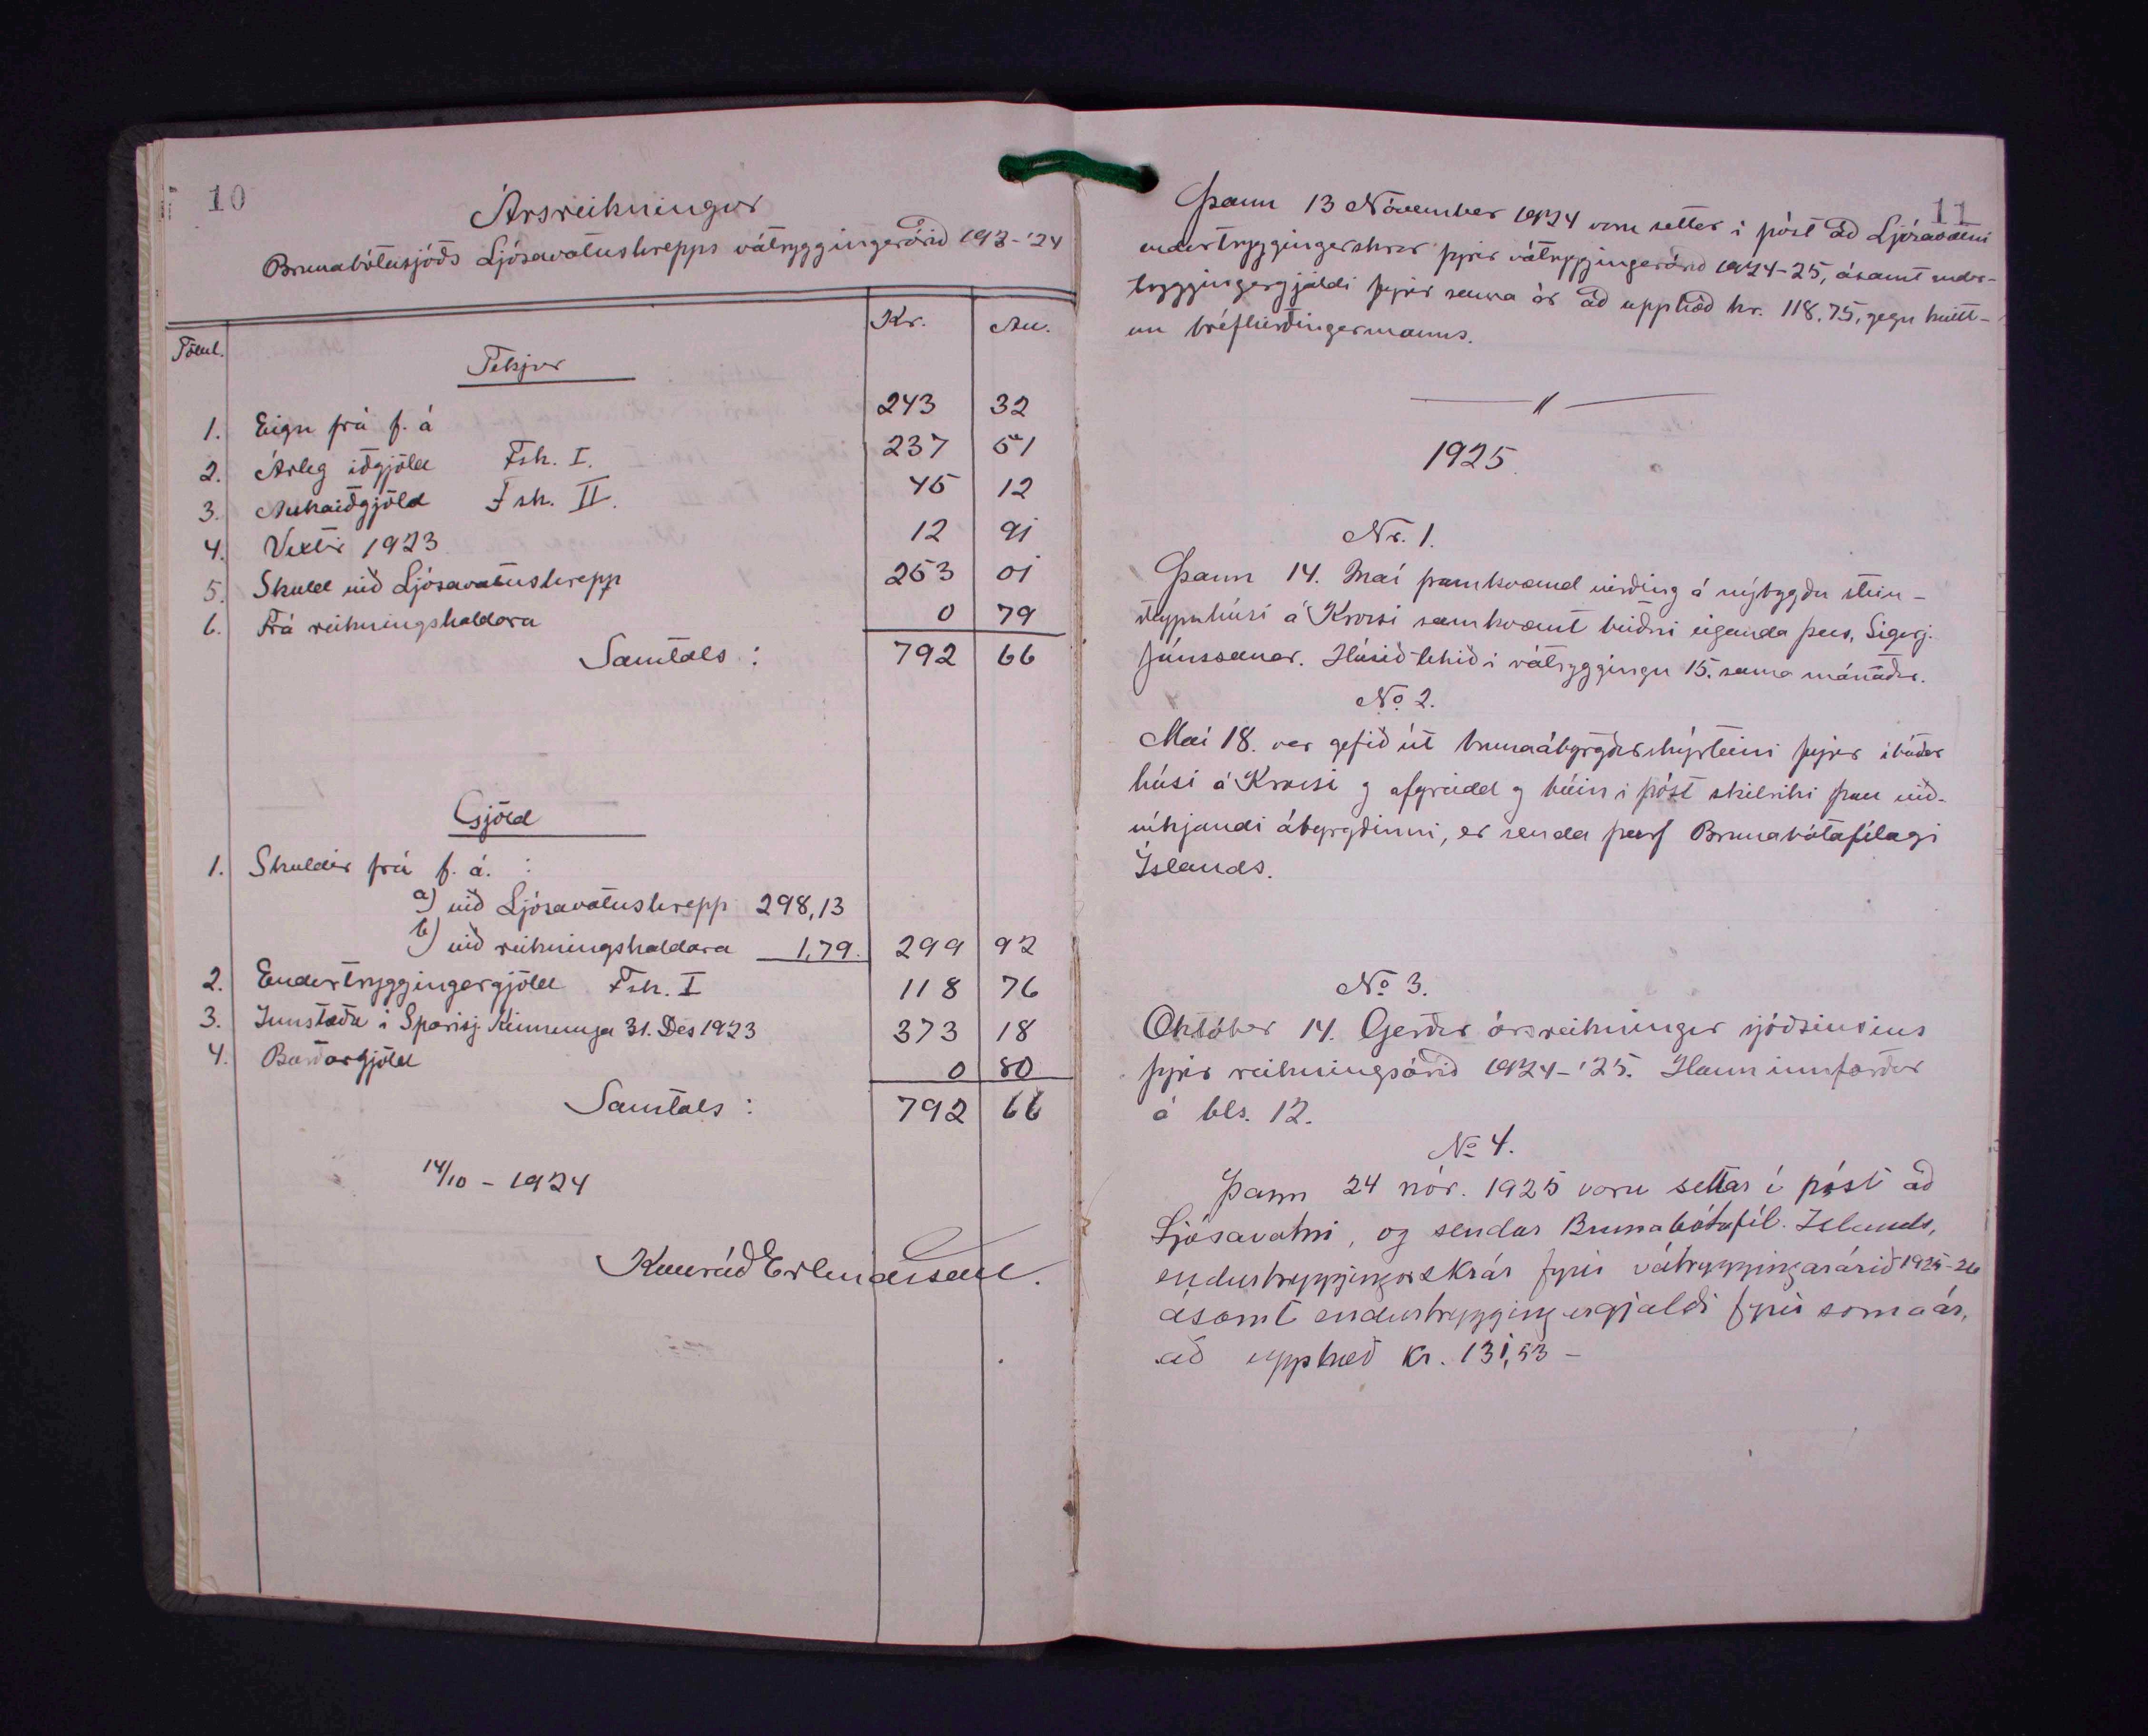 10
Ársreikningur
Brunabótasjóðs Ljósavatnshrepps vátryggingarárið 192-'24
Tölul. Kr. Au.
Tekjur
1. Eign frá f. á 243 32
2. Árleg iðgjöld Fsk. I. 237 51
3. Aukaiðgjöld Fsk. II. 45 12
4. Vextir 1923 12 91
5. Skuld við Ljósavatnshrepp 253 01
6. Frá reikningshaldara 0 79
Samtals: 792 66
Gjöld
1. Skuldir frá f. á. :
a) við Ljósavatnshrepp 298,13
b) við reikningshaldara 1,79. 299 92
2. Endurtryggingargjöld Fsk. I 118 76
3. Innstæða í Sparisj. Kinnunga 31. Des 1923 373 18
4. Burðargjöld 0 80
Samtals: 792 66
14/10 - 1924
Konráð Erlendsson.
11
Þann 13 Nóvember 1924 voru settar í póst að Ljósavatni
endurtryggingarskrár fyrir vátryggingarárið 1924-25, ásamt endur-
tryggingargjaldi fyrir sama ár að upphæð kr. 118.75, gegn kvitt-
un bréfhirðingarmanns.
1925.
Nr. 1.
Þann 14. Maí framkvæmd virðing á nýbygðu stein-
steypuhúsi á Krossi samkvæmt beiðni eiganda þess, Sigurj.
Jónssonar. Húsið tekið í vátryggingu 15. sama mánaðar.
No. 2.
Maí 18. var gefið út brunaábyrgðarskýrteini fyrir íbúðar
húsi á Krossi og afgreidd og búin í póst skilríki þau við-
víkjandi ábyrgðinni, er senda þarf Brunabótafélagi
Íslands.
No 3.
Október 14. Gerður ársreikningur sjóðsins
fyrir reikningsárið 1924-'25. Hann innfærður
á bls. 12.
No 4.
Þann 24 nóv. 1925 voru settar í póst að
Ljósavatni, og sendar Brunabótafél. Islands,
endurtryggingarskrár fyrir vátryggingarárið 1925-26
ásamt endurtryggingargjaldi fyrir sama ár,
að upphæð kr. 131,53 -